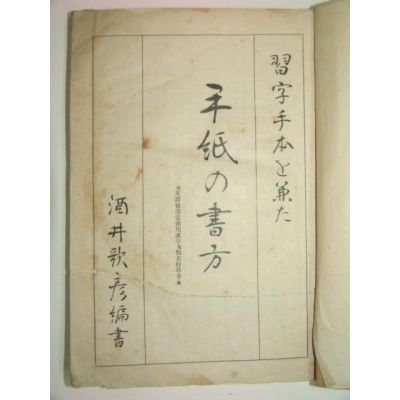 習字手本を兼た
手紙の書方
酒井歌彦編書